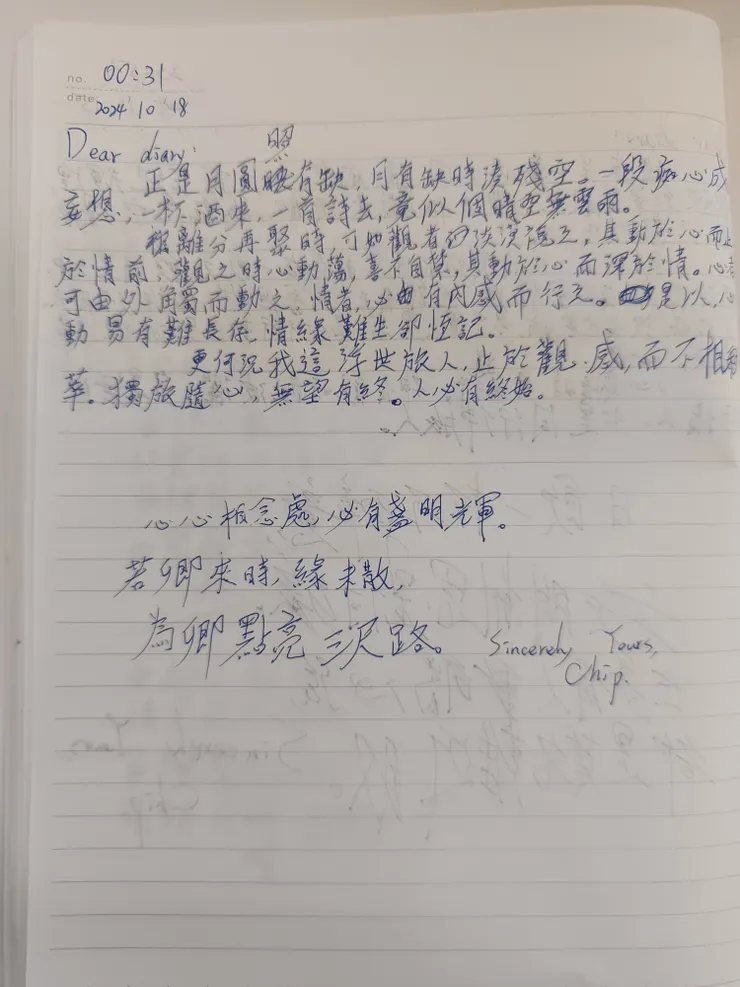 no. 00:31
date: 2024 10 18
Dear diary: 照
正是月圓有缺,月有缺時淒殘空。一段痴心成
妄想,一杯酒來,一首詩去,竟似個晴空無雲雨。
離分再聚時,可如觀者的淡淡說之,其動於心而止
於情前;觀之時心動蕩,喜不自禁,其動於心而深於情。心者
可由外觸而動之,情者,必由有內感而行之。是以,心
動易有難長存,情緣難生卻恆記。
更何況我這浮世旅人,止於觀.感,而不相
獨旅隨心,無望有終。人必有終始。
心心相念處,必有盞明光輝。
若卿來時,緣未散,
為卿點亮三尺路。 Sincerely Yours,
Chip.